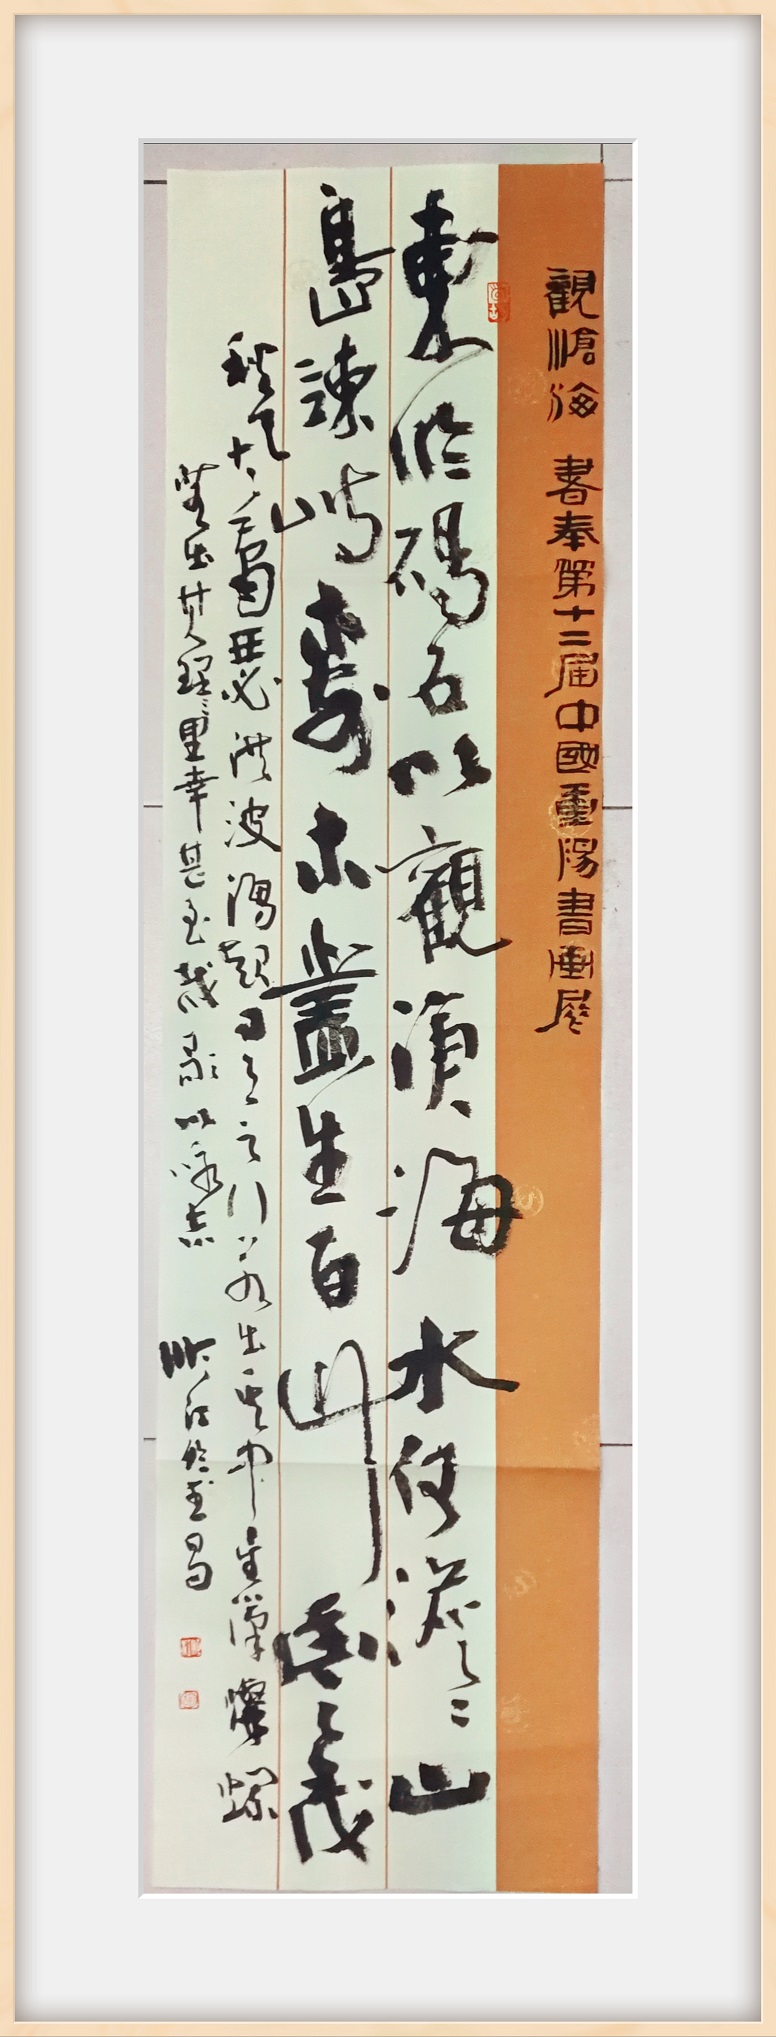 觀滄海 書奉第十二届中國重陽書画展
東臨碣石以觀滄海水何澹〻山
島竦峙樹木叢生百艸豐茂
秋風蕭瑟洪波湧起日月之行若出其中星漢燦爛
若出其裏幸甚至哉歌以詠志